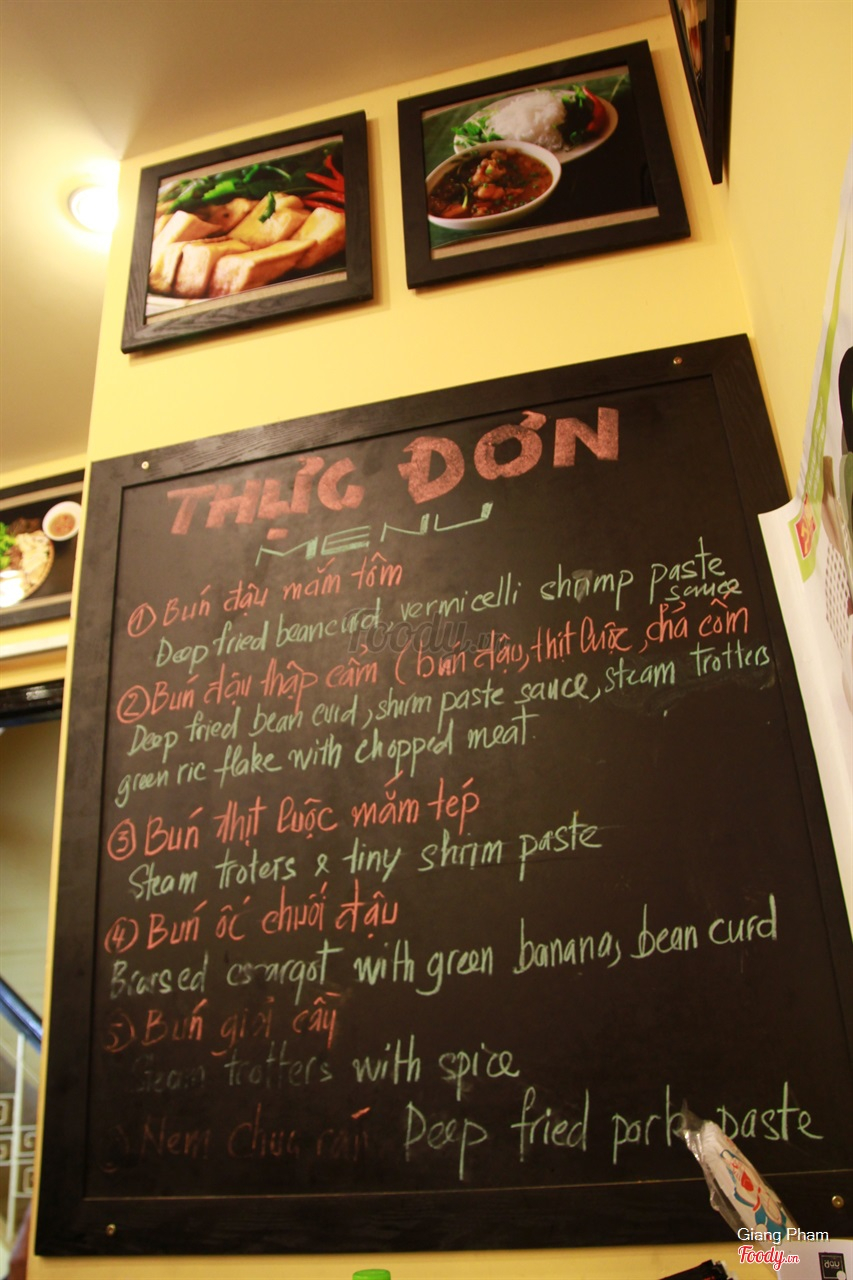 THỰC ĐƠN
MENU
① Bún đậu mắm tôm
Deep fried beancurd, vermicelli shrimp paste
sauce
② Bún đậu thập cẩm (bún đậu, thịt luộc, chả cốm
Deep fried bean curd, shrim paste sauce, steam trotters
green ric flake with chopped meat
③ Bún thịt luộc mắm tép
Steam troters & tiny shrim paste
④ Bún ốc chuối đậu
with green banana, bean curd
⑤ Bún giả cầy
Steam trotters with spice
Nem chua rán Deep fried pork paste
Foody.vn
Giang Pham
Foody.vn